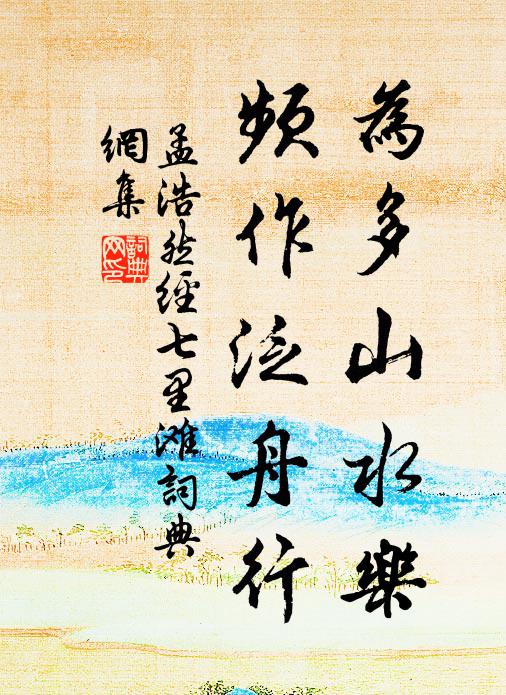 為多山水樂
頻作泛舟行
孟浩然經七里滩詞典
網集
詞典
网印